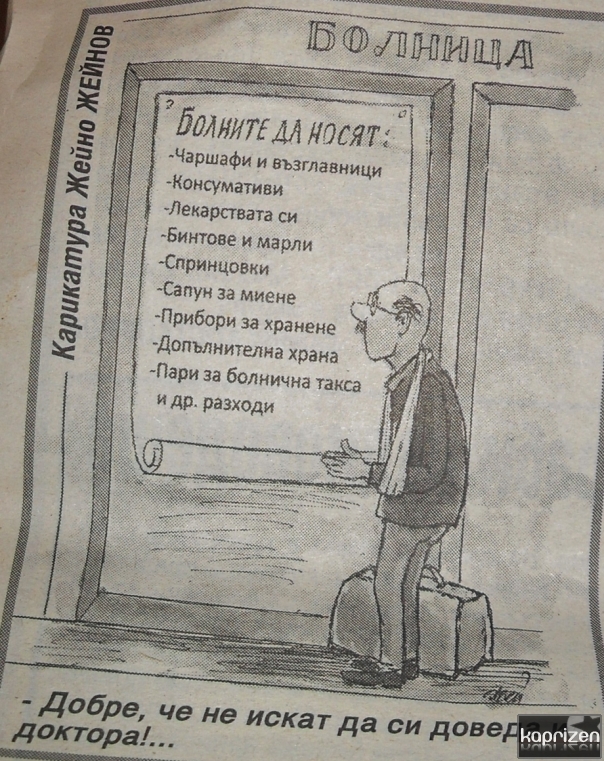 БОЛНИЦА
Карикатура Жейно ЖЕЙНОВ
БОЛНИТЕ ДА НОСЯТ:
-Чаршафи и възглавници
-Консумативи
-Лекарствата си
-Бинтове и марли
-Спринцовки
-Сапун за миене
-Прибори за хранене
-Допълнителна храна
-Пари за болнична такса
и др. разходи
- Добре, че не искат да си доведа и
доктора!...
kaprizen